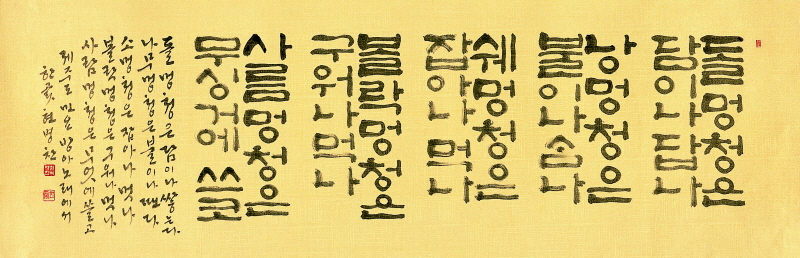 돌멍청은
담이나답나
낭멍청은
불이나솜나
쉐멍청은
잡아나먹나
볼락멍청은
구워나먹나
사름멍청은
무싱거에쓰코
돌멍청은 담이나 쌓는다.
나무멍청은 불이나 땐다.
소멍청은 잡아나 먹나
볼락멍청은 구워나 먹나
사람멍청은 무엇에 쓸고
제주도 민요 방아노래에서
한곬 현병찬